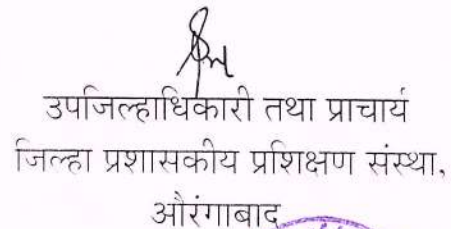 उपजिल्हाधिकारी तथा प्राचार्य
जिल्हा प्रशासकीय प्रशिक्षण संस्था,
औरंगाबाद